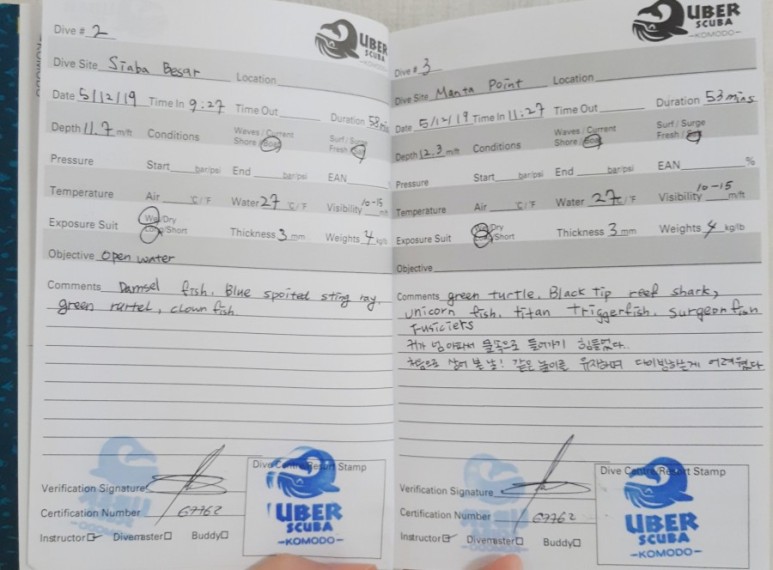 Dive # 2
UBER
SCUBA
-KOMODO-
Dive Site Siaba Besar Location
Date 5/12/19 Time In 9:27 Time Out Duration 58 mins
Depth 11.7 m/ft Conditions Waves / Current Surf / Surge
Shore / Boat Fresh / Salt
Pressure Start bar/psi End bar/psi EAN
Temperature Air °C/°F Water 27 °C/°F Visibility 10-15 m/ft
Exposure Suit Wet/Dry Long/Short Thickness 3 mm Weights 4 kg/lb
Objective Open water
Comments Damsel fish. Blue spoited sting ray.
green rurtel, clown fish.
Verification Signature
Certification Number 67762
Instructor Divemaster Buddy
Dive Centre/Resort Stamp
UBER
SCUBA
-KOMODO-
Dive # 3
UBER
SCUBA
-KOMODO-
Dive Site Manta Point Location
Date 5/12/19 Time In 11:27 Time Out Duration 53 mins
Depth 12.3 m/ft Conditions Waves / Current Surf / Surge
Shore / Boat Fresh / Salt
Pressure Start bar/psi End bar/psi EAN %
Temperature Air °C/°F Water 27 °C/°F Visibility 10-15 m/ft
Exposure Suit Wet/Dry Long/Short Thickness 3 mm Weights 4 kg/lb
Objective
Comments green turtle. Black Tip reef shark,
unicorn fish, titan Triggerfish. surgeon fish
Fusiciers
귀가 넘 아파서 물속으로 들어가기 힘들었다.
처음으로 상어 본 날! 같은 높이를 유지하며 다이빙하는게 어려웠다
Verification Signature
Certification Number 67762
Instructor Divemaster Buddy
Dive Centre/Resort Stamp
UBER
SCUBA
-KOMODO-